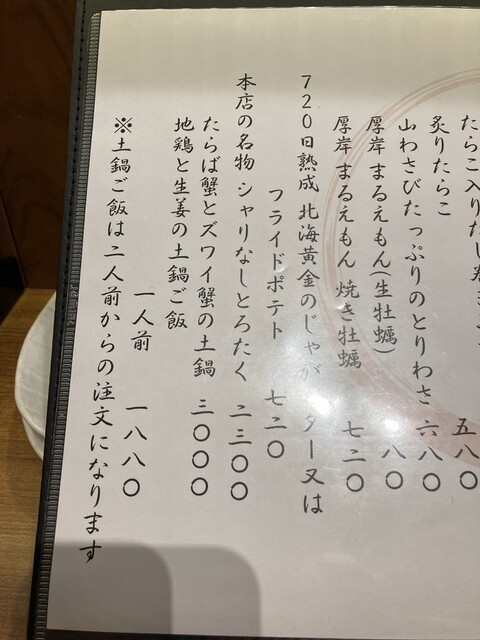 たらこ入りだし巻き
炙りたらこ 五八〇
山わさびたっぷりのとりわさ 六八〇
厚岸 まるえもん(生牡蠣) 八〇
厚岸 まるえもん 焼き牡蠣 七二〇
720日熟成 北海黄金のじゃが ター又は
フライドポテト 七二〇
本店の名物 シャリなしとろたく 二三〇〇
たらば蟹とズワイ蟹の土鍋 三〇〇〇
地鶏と生姜の土鍋ご飯
一人前 一八八〇
※土鍋ご飯は二人前からの注文になります